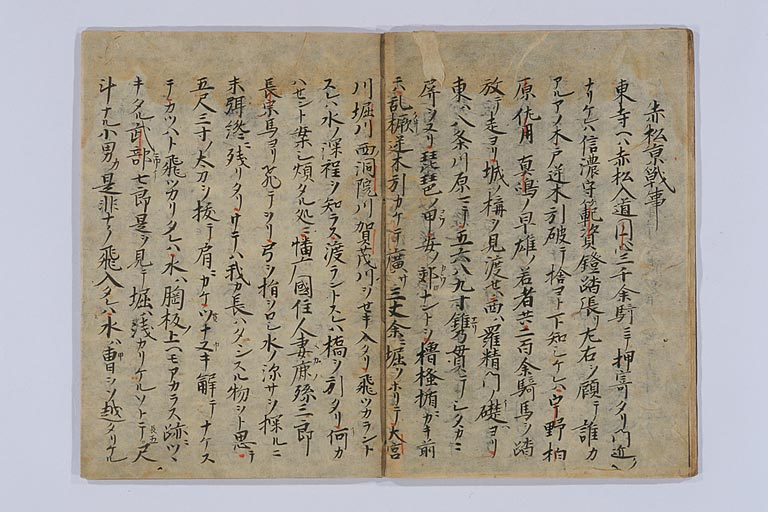 赤松京戦事
東寺ヘハ赤松入道円心三千余騎ニテ押寄タリ門近ク
ナリケレハ信濃守範資鐙踏張リ左右ヲ顧テ誰カ
アルアノ木戸逆木引破テ捨ヨト下知シケレハ宇野柏
原佐用真嶋ノ早雄ノ若者共二百余騎馬ヲ踏
放テ走ヨリ城ノ構ヲ見渡セハ西ハ羅精門ノ礎ヨリ
東ハ八条川原マテ五六八九寸錐乃貫ニテシタタカニ
屏ヲヌリ琵琶ノ甲安ノ郡ナントヲ櫓掻楯カキ前
ニハ乱橛逆木引カケテ廣サ三丈余ニ堀ヲホリテ大宮
川堀川西洞院川賀茂川ヲセキ入タリ飛ツカラント
スレハ水ノ深程ヲ知ラス渡ラントスレハ橋ヲ引タリ何カ
ハセント案シ煩タル処ニ幡广國住人妻鹿孫三郎
長宗馬ヨリ飛テヲリ弓ヲ指ヲロシ水ノ深サヲ探ルニ
末弭終ニ残リタリサテハ我カ長ハタヽンスル物ヲト思テ
五尺三寸ノ太刀ヲ抜テ肩ニカケツナヌキ解テナケス
テカツハト飛ツカリタレハ水ハ胸板ノ上ヘモアカラス跡ニツヽ
キタル武部七郎是ヲ見テ堀ハ浅カリケルソトテ長五尺
斗ナル小男カ是非ナク飛入タレハ水ハ冑ヲソ越タリケル